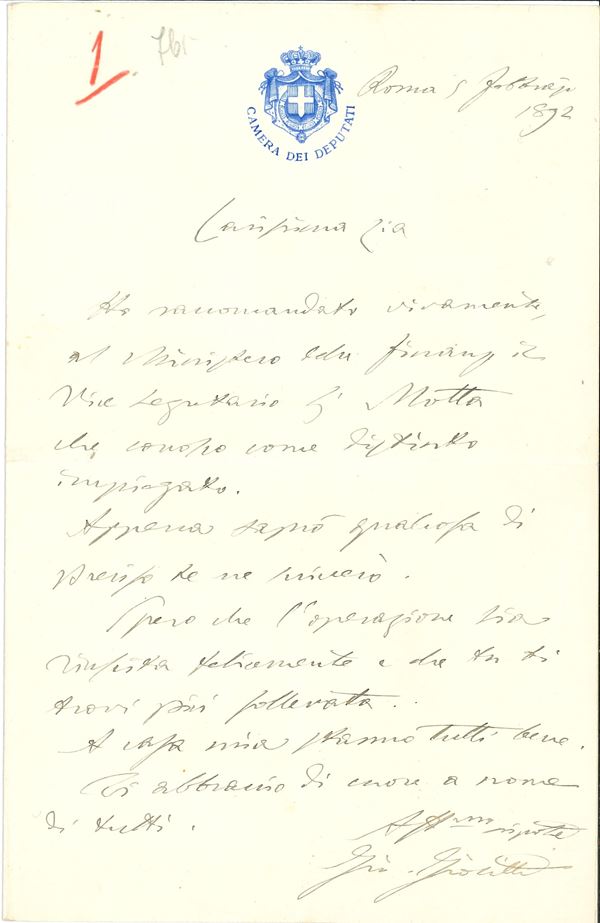 1.
765
CAMERA DEI DEPUTATI
Roma 5 febbraio
1892
Carissima Zia
Ho raccomandato vivamente,
al Ministero delle finanze il
Vice segretario G. Motta
che conosco come distinto
impiegato.
Appena saprò qualcosa di
preciso te ne scriverò.
Spero che l'operazione sia
riuscita felicemente e che tu ti
trovi più sollevata.
A casa mia stanno tutti bene.
Ti abbraccio di cuore a nome
di tutti.
Aff.mo nipote
Gio. Giolitti